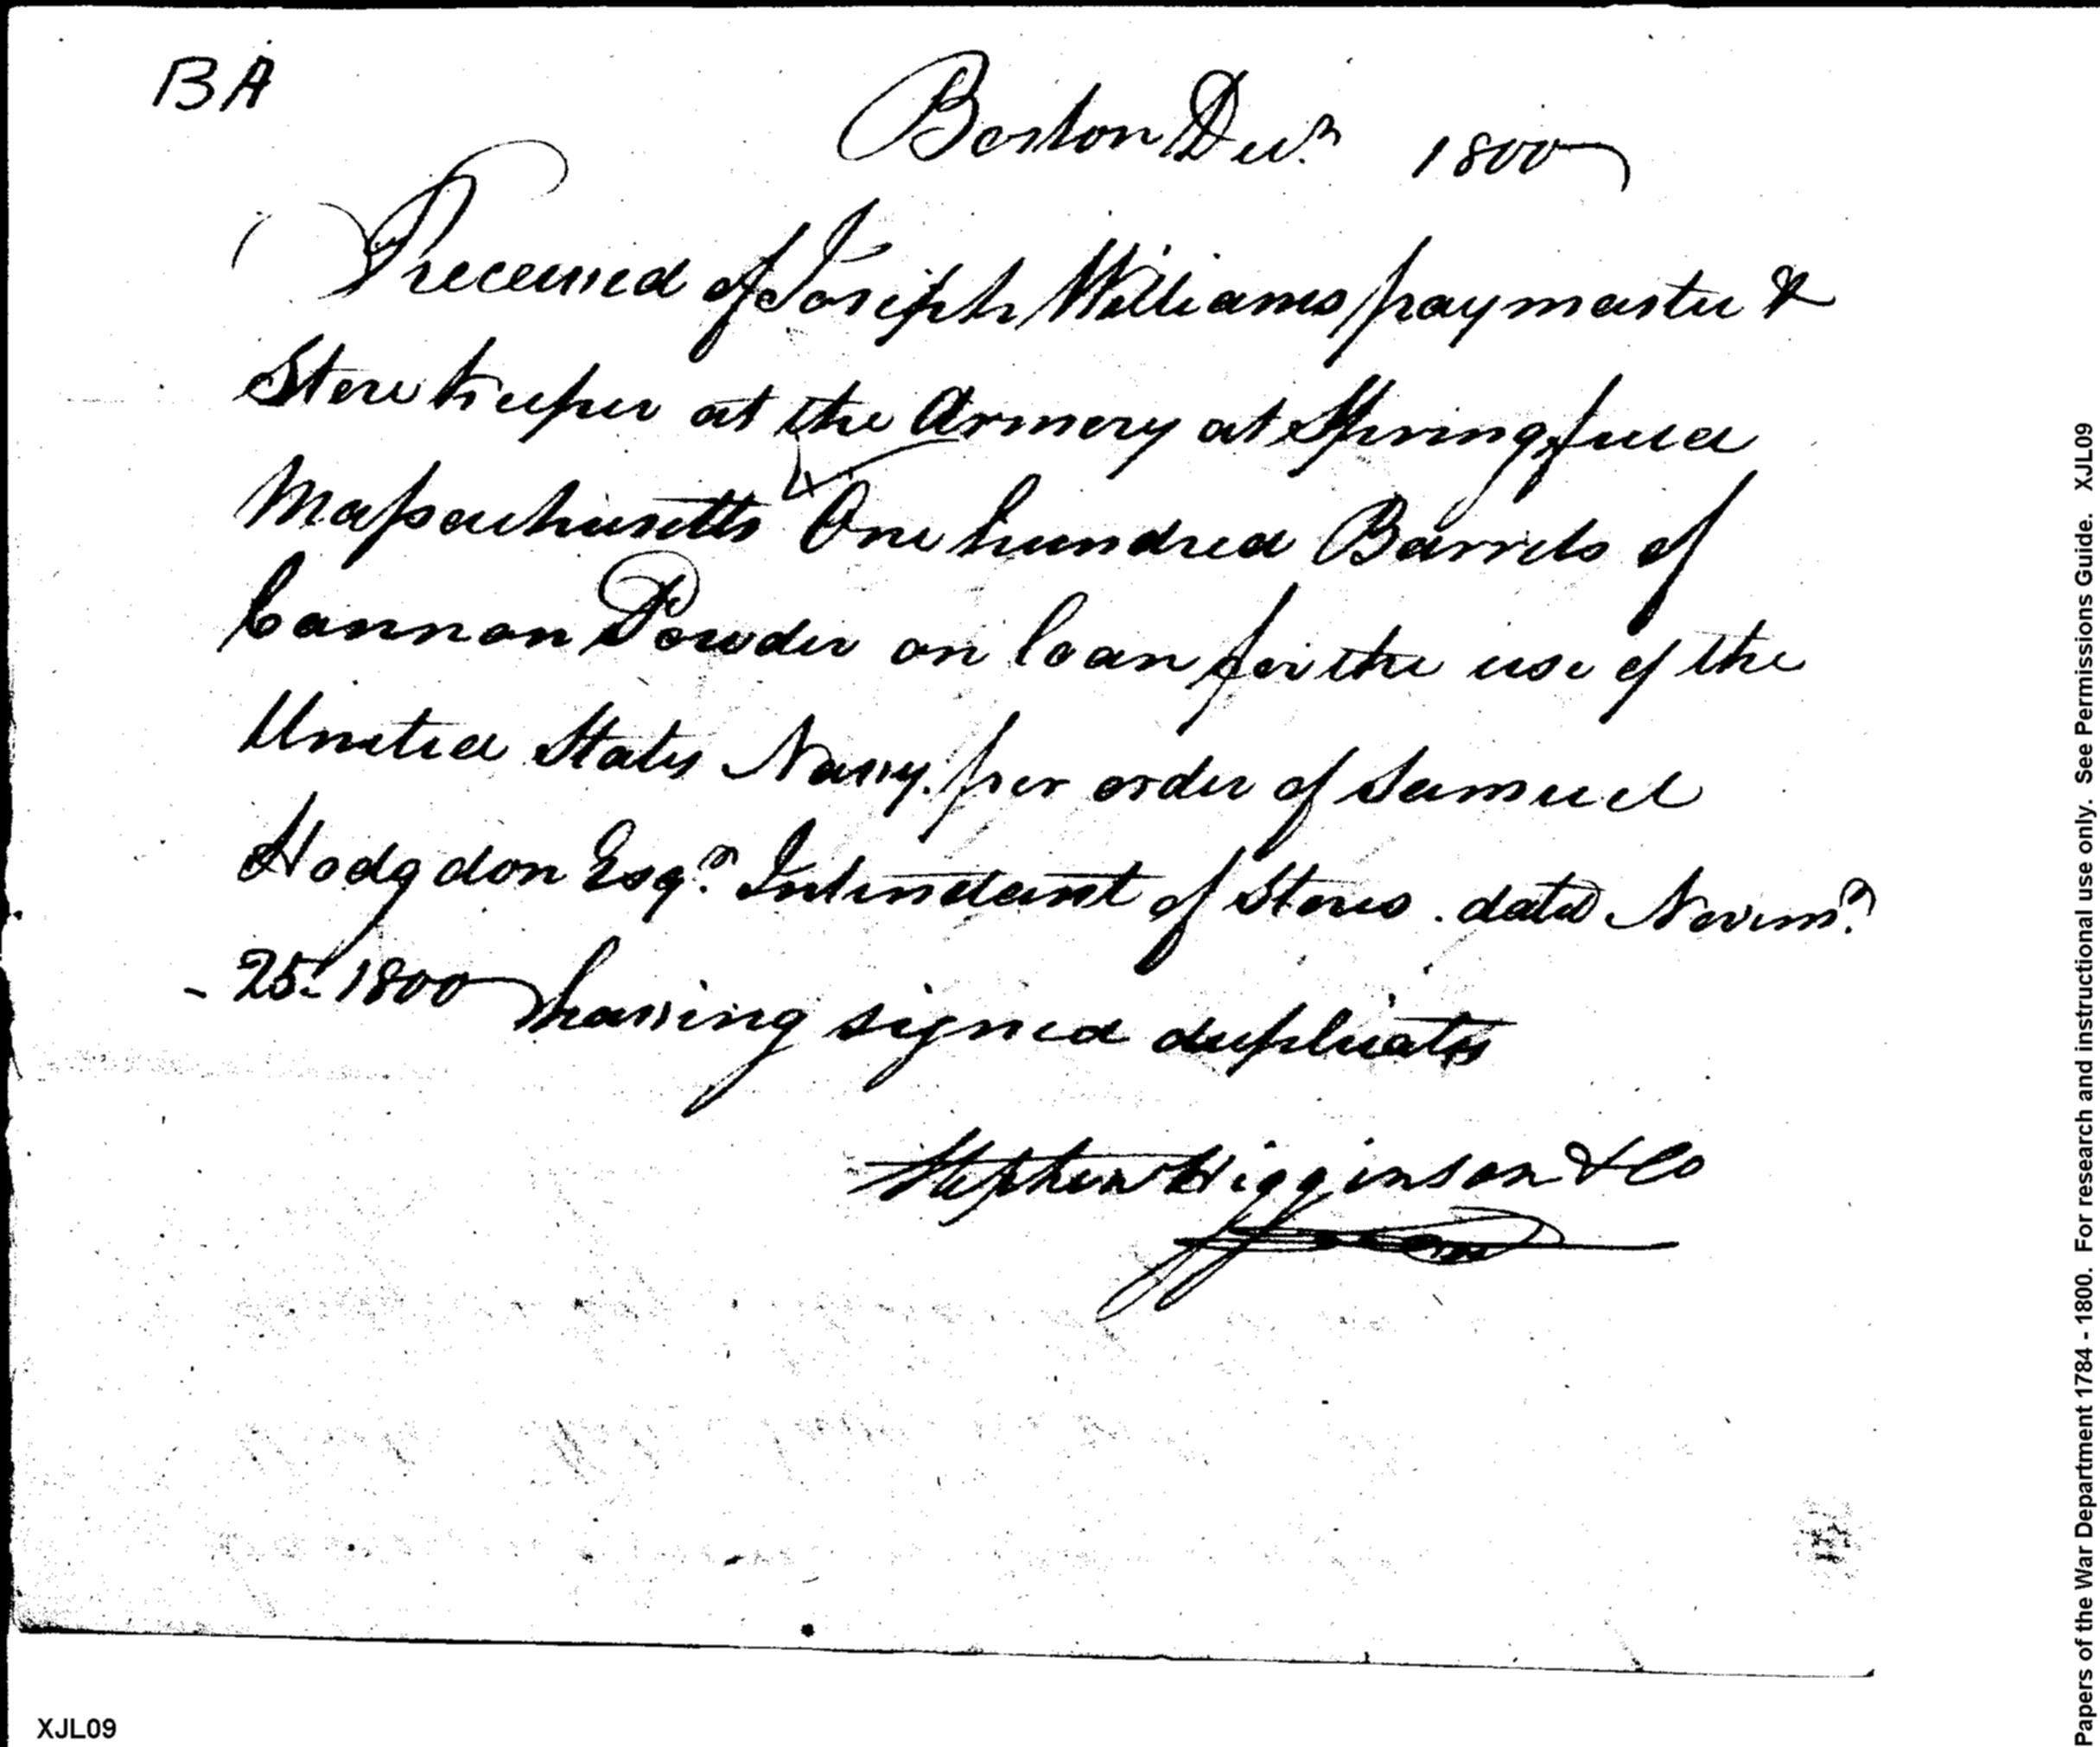 BA
Boston Decr 1800
Received of Joseph Williams paymaster &
Store keeper at the Armory at Springfield
Massachusetts One hundred Barrels of
Cannon Powder on loan for the use of the
United States Navy. per order of Samuel
Hodgdon Esqr. Intendant of Stores. dated Novemr.
- 25. 1800 having signed duplicates
Stephen Higginson & Co
XJL09
Papers of the War Department 1784 - 1800. For research and instructional use only. See Permissions Guide. XJL09